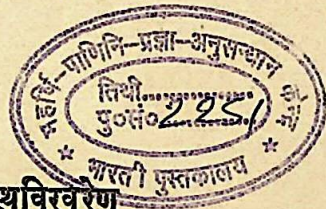 महर्षि-पाणिनि-प्रज्ञा-अनुसन्धान केन्द्र
तिथी..............
पु०सं० 2251
* भारती पुस्तकालय *
थविरवरेण